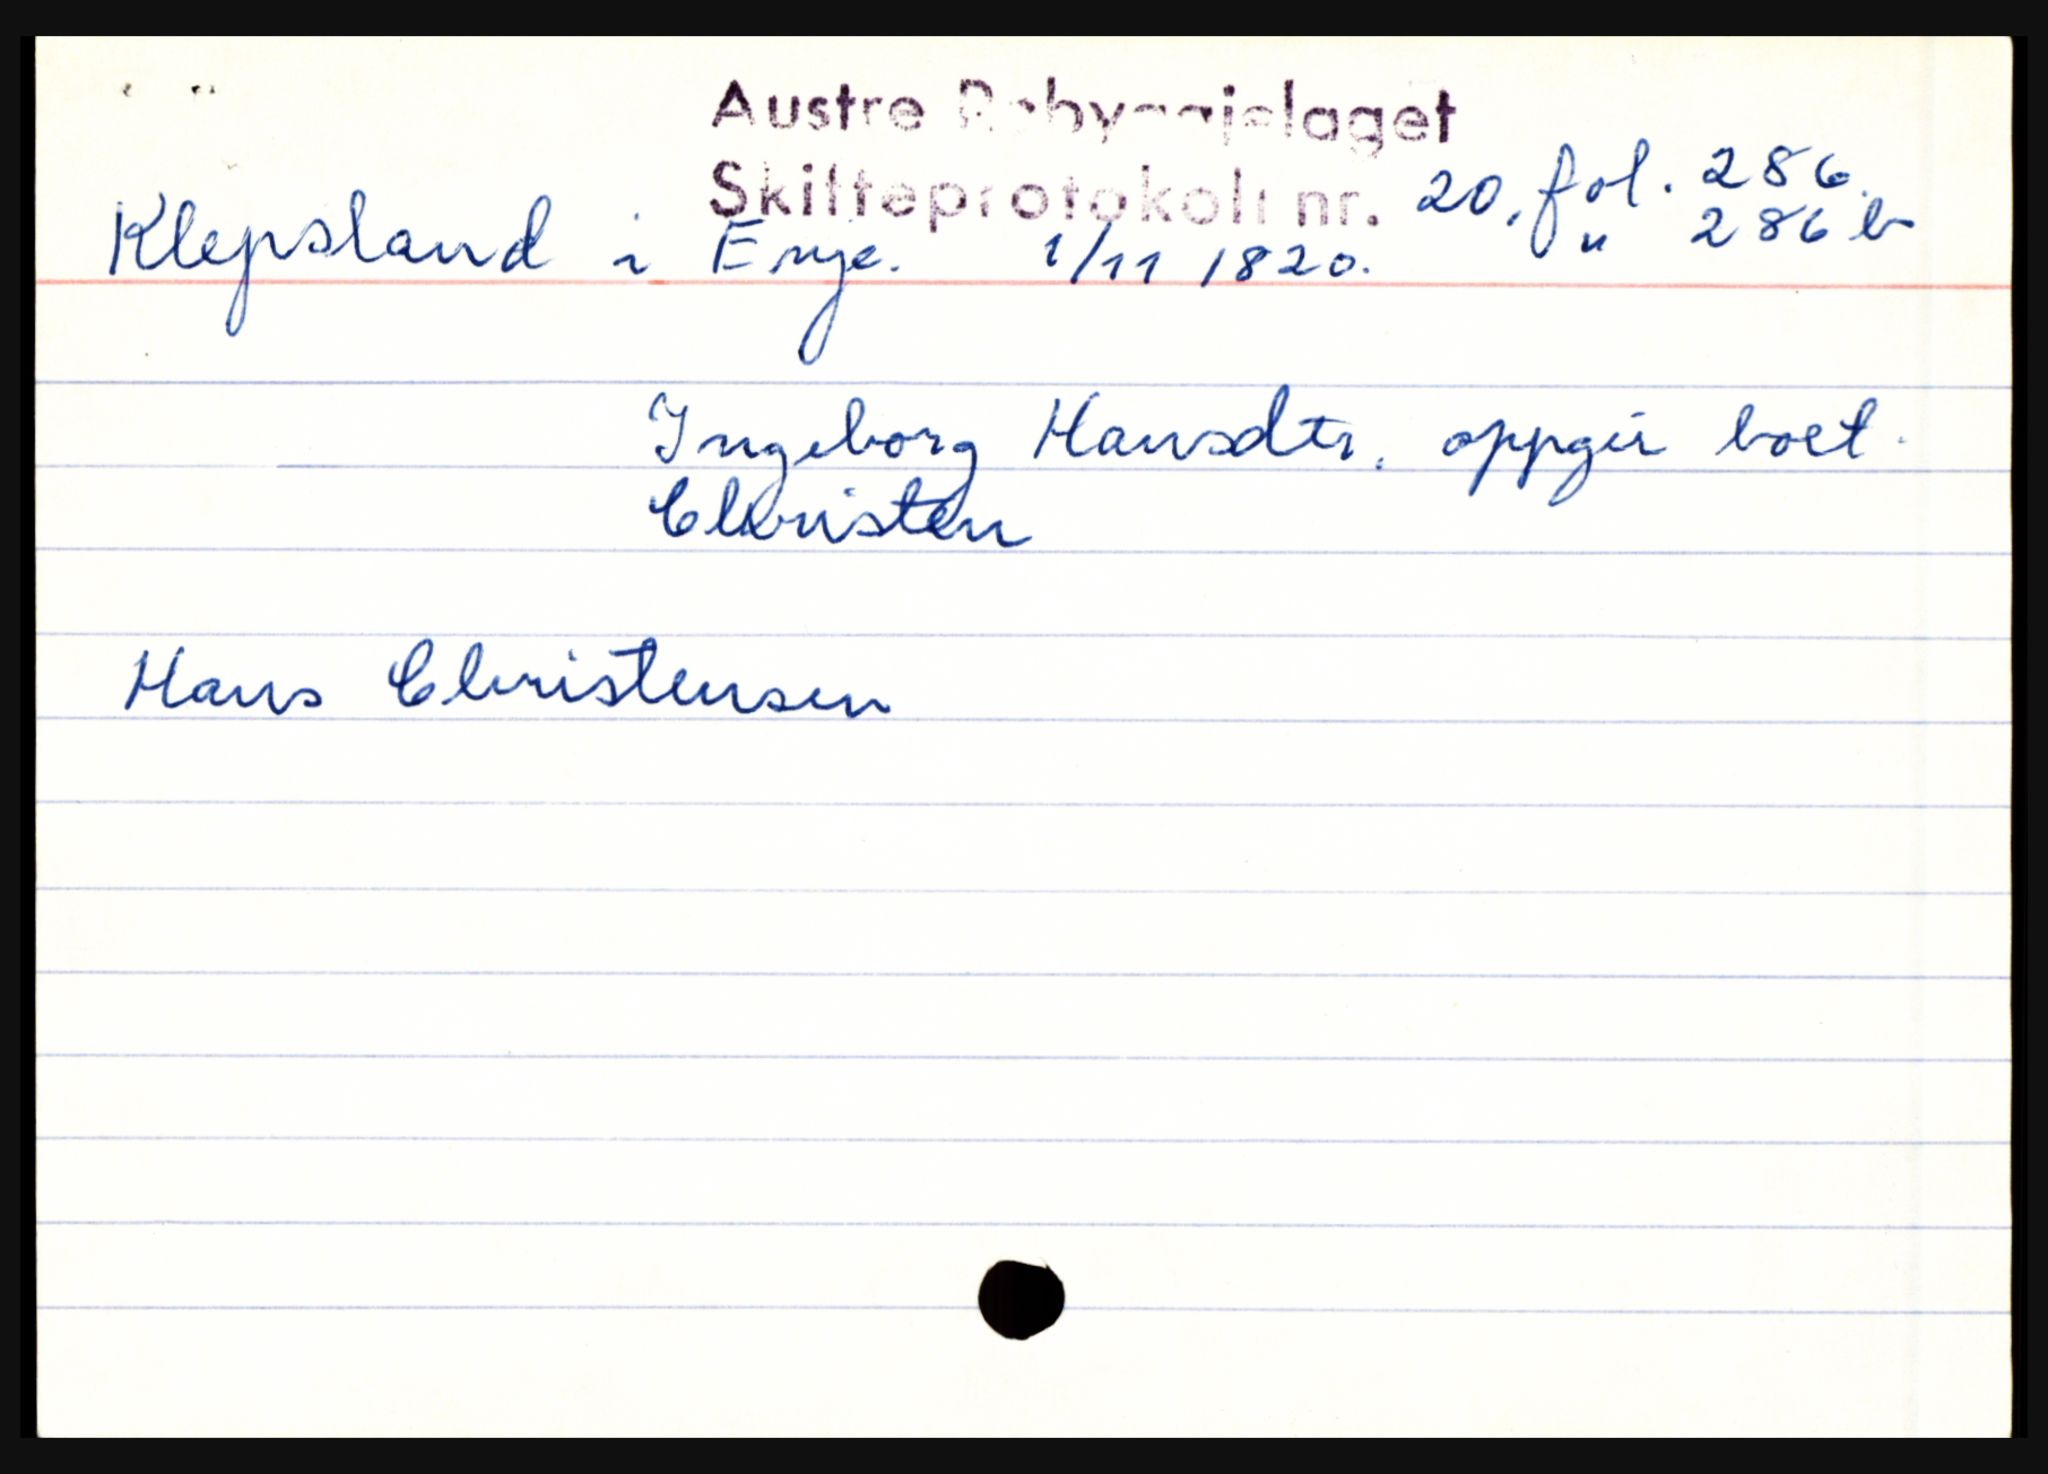 Austre Robyggjelaget
Skifteprotokoll nr. 20, fol. 286.
Klepsland i Enje. 1/11 1820. " 286 b
Ingeborg Hansdtr. oppgir boet.
Christen
Hans Christensen